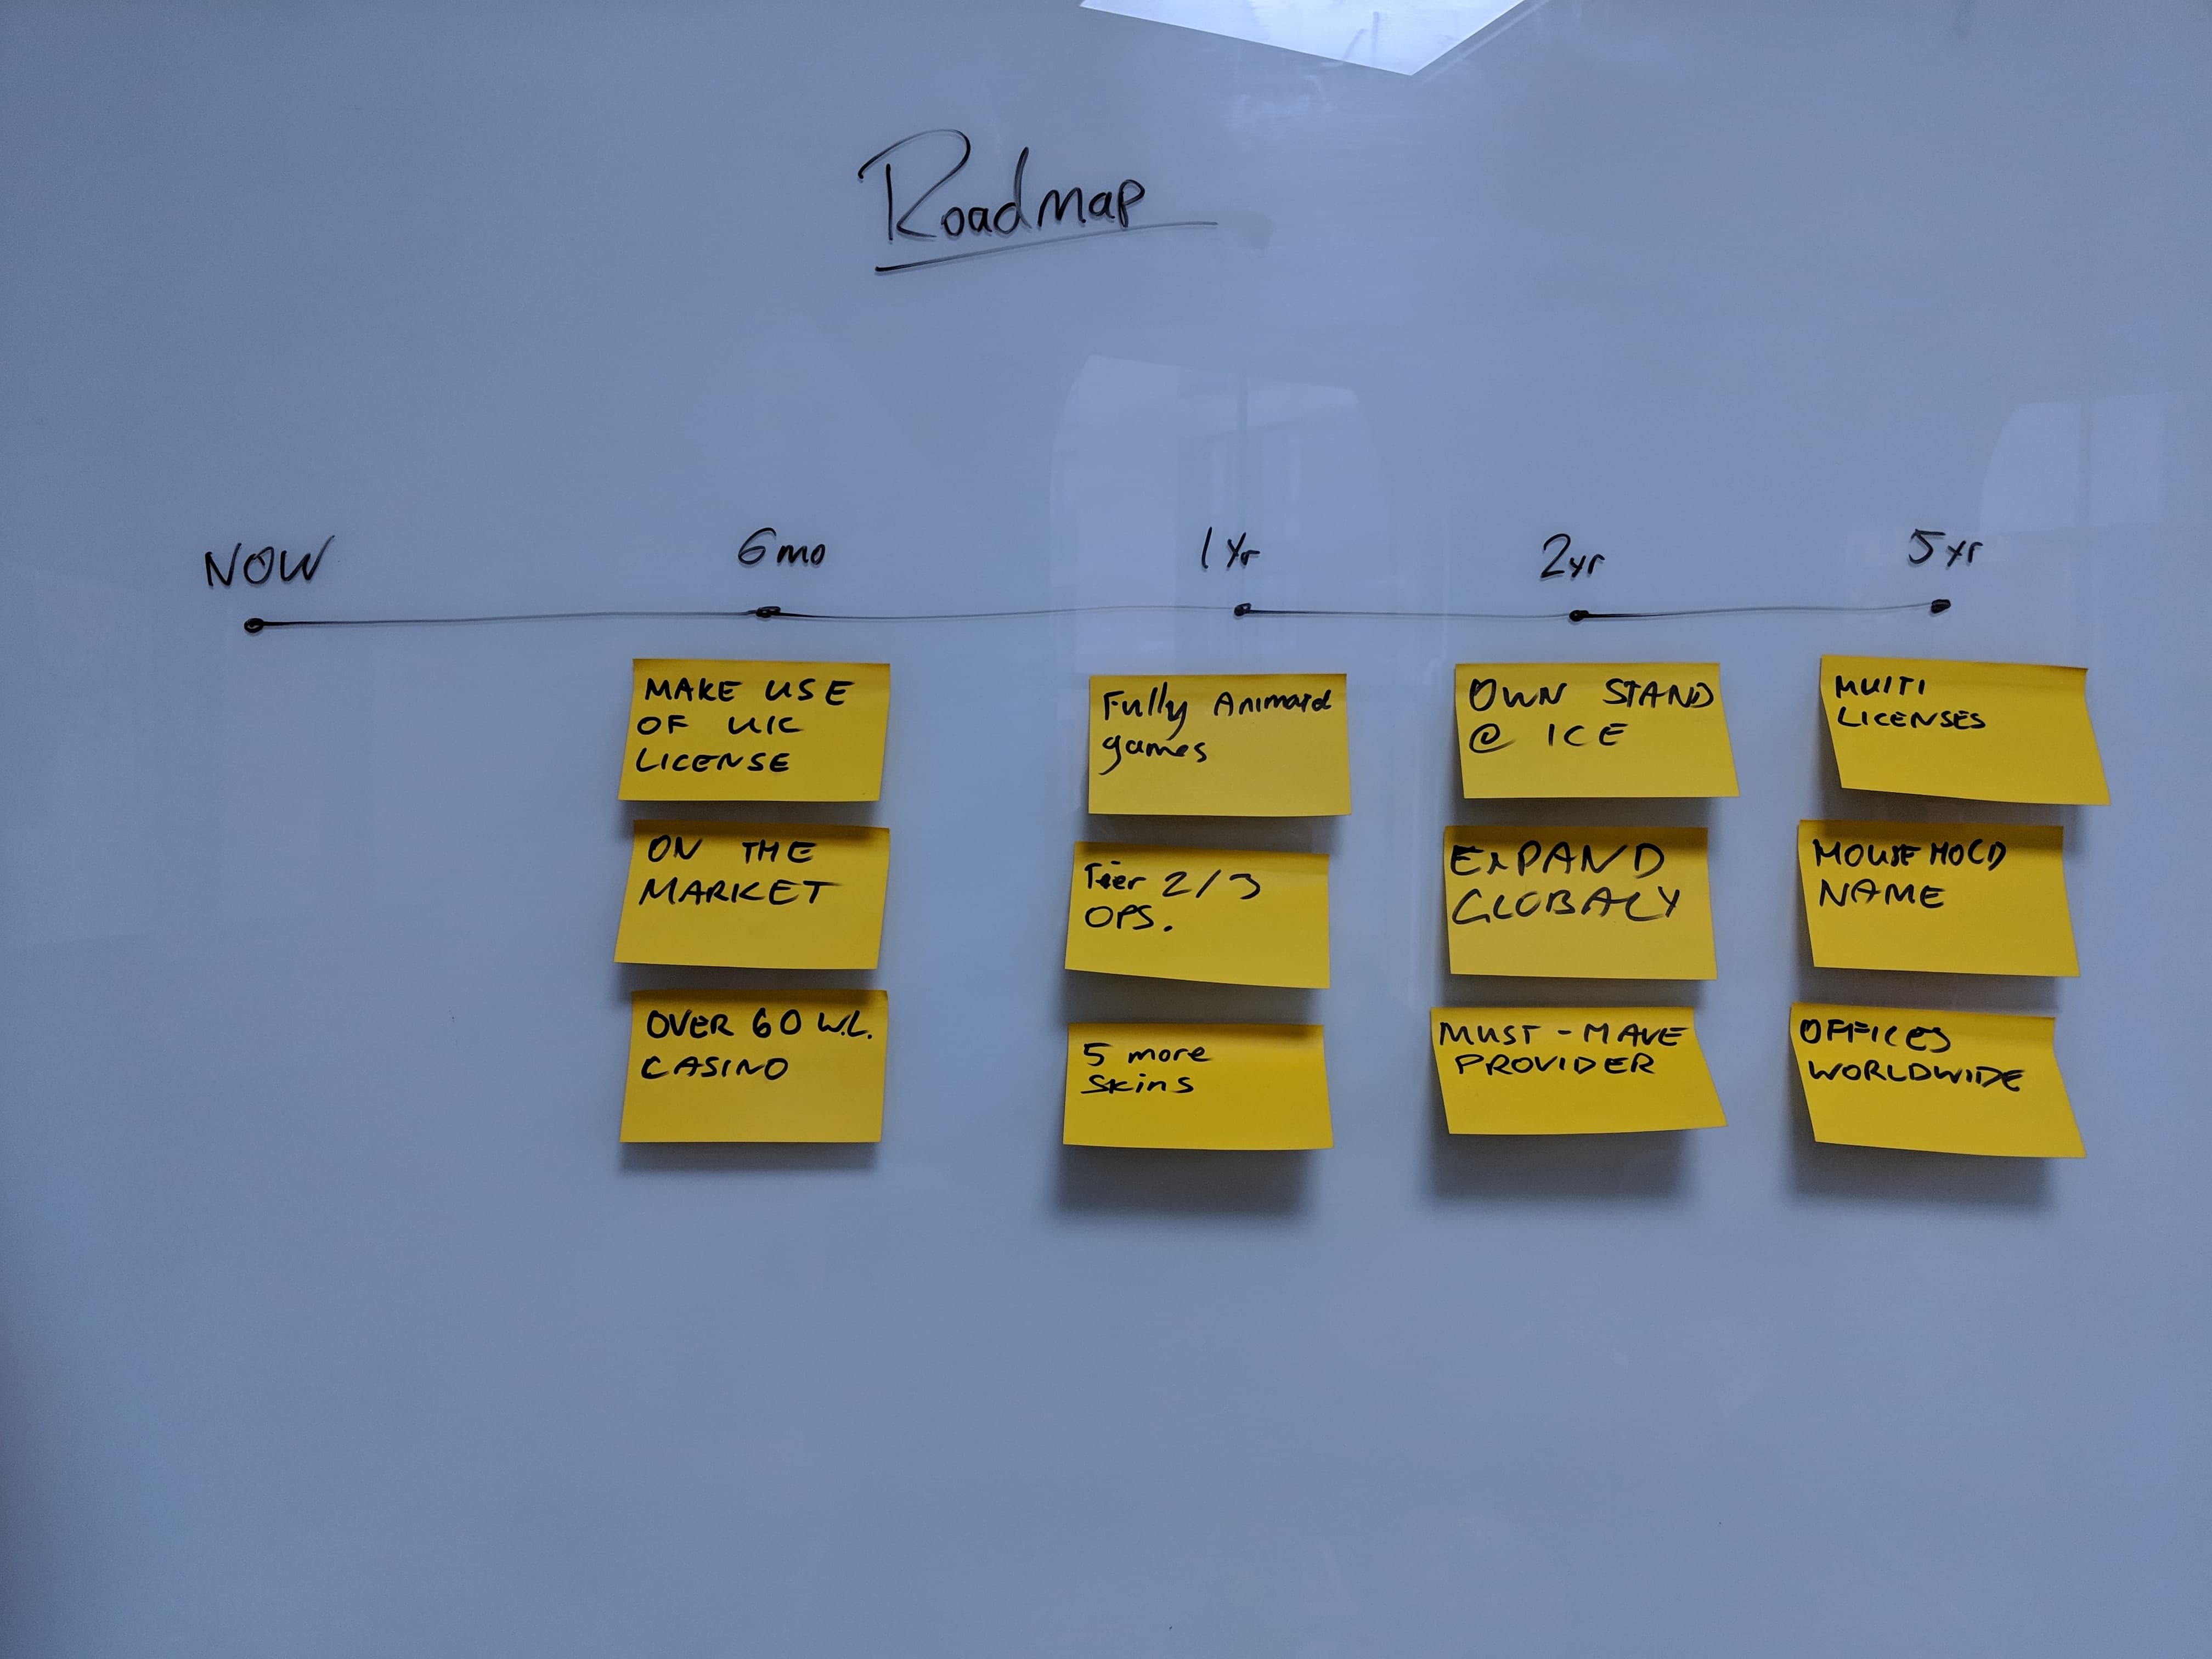 Roadmap
NOW
6mo
1 Yr
2yr
5 yr
MAKE USE
OF UK
LICENSE
ON THE
MARKET
OVER 60 W.L.
CASINO
Fully Animated
games
Tier 2/3
OPS.
5 more
skins
OWN STAND
@ ICE
EXPAND
GLOBALY
MUST-HAVE
PROVIDER
MULTI
LICENSES
HOUSEHOLD
NAME
OFFICES
WORLDWIDE